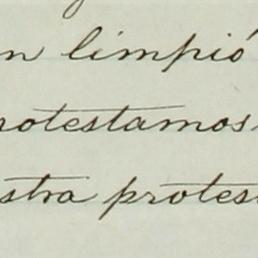 n limpió
rotestamos
stra protes